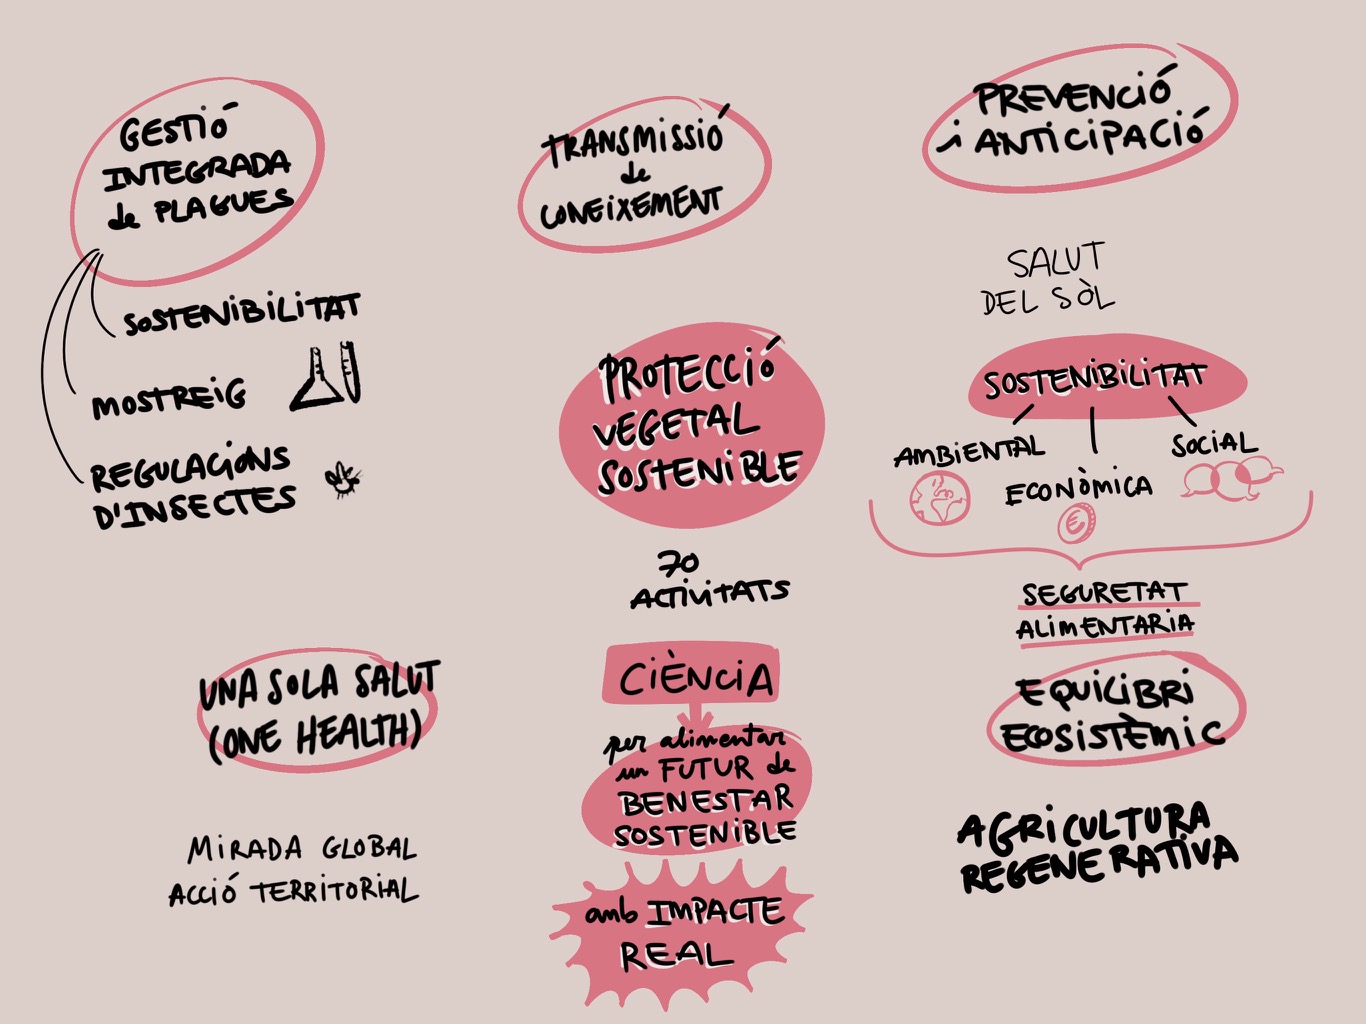 GESTIÓ
INTEGRADA
de PLAGUES
SOSTENIBILITAT
MOSTREIG
REGULACIONS
D'INSECTES
TRANSMISSIÓ
de
CONEIXEMENT
PREVENCIÓ
i ANTICIPACIÓ
SALUT
DEL SÒL
PROTECCIÓ
VEGETAL
SOSTENIBLE
70
ACTIVITATS
SOSTENIBILITAT
AMBIENTAL
ECONÒMICA
SOCIAL
€
SEGURETAT
ALIMENTARIA
UNA SOLA SALUT
(ONE HEALTH)
MIRADA GLOBAL
ACCIÓ TERRITORIAL
CIÈNCIA
per alimentar
un FUTUR de
BENESTAR
SOSTENIBLE
amb IMPACTE
REAL
EQUILIBRI
ECOSISTÈMIC
AGRICULTURA
REGENERATIVA